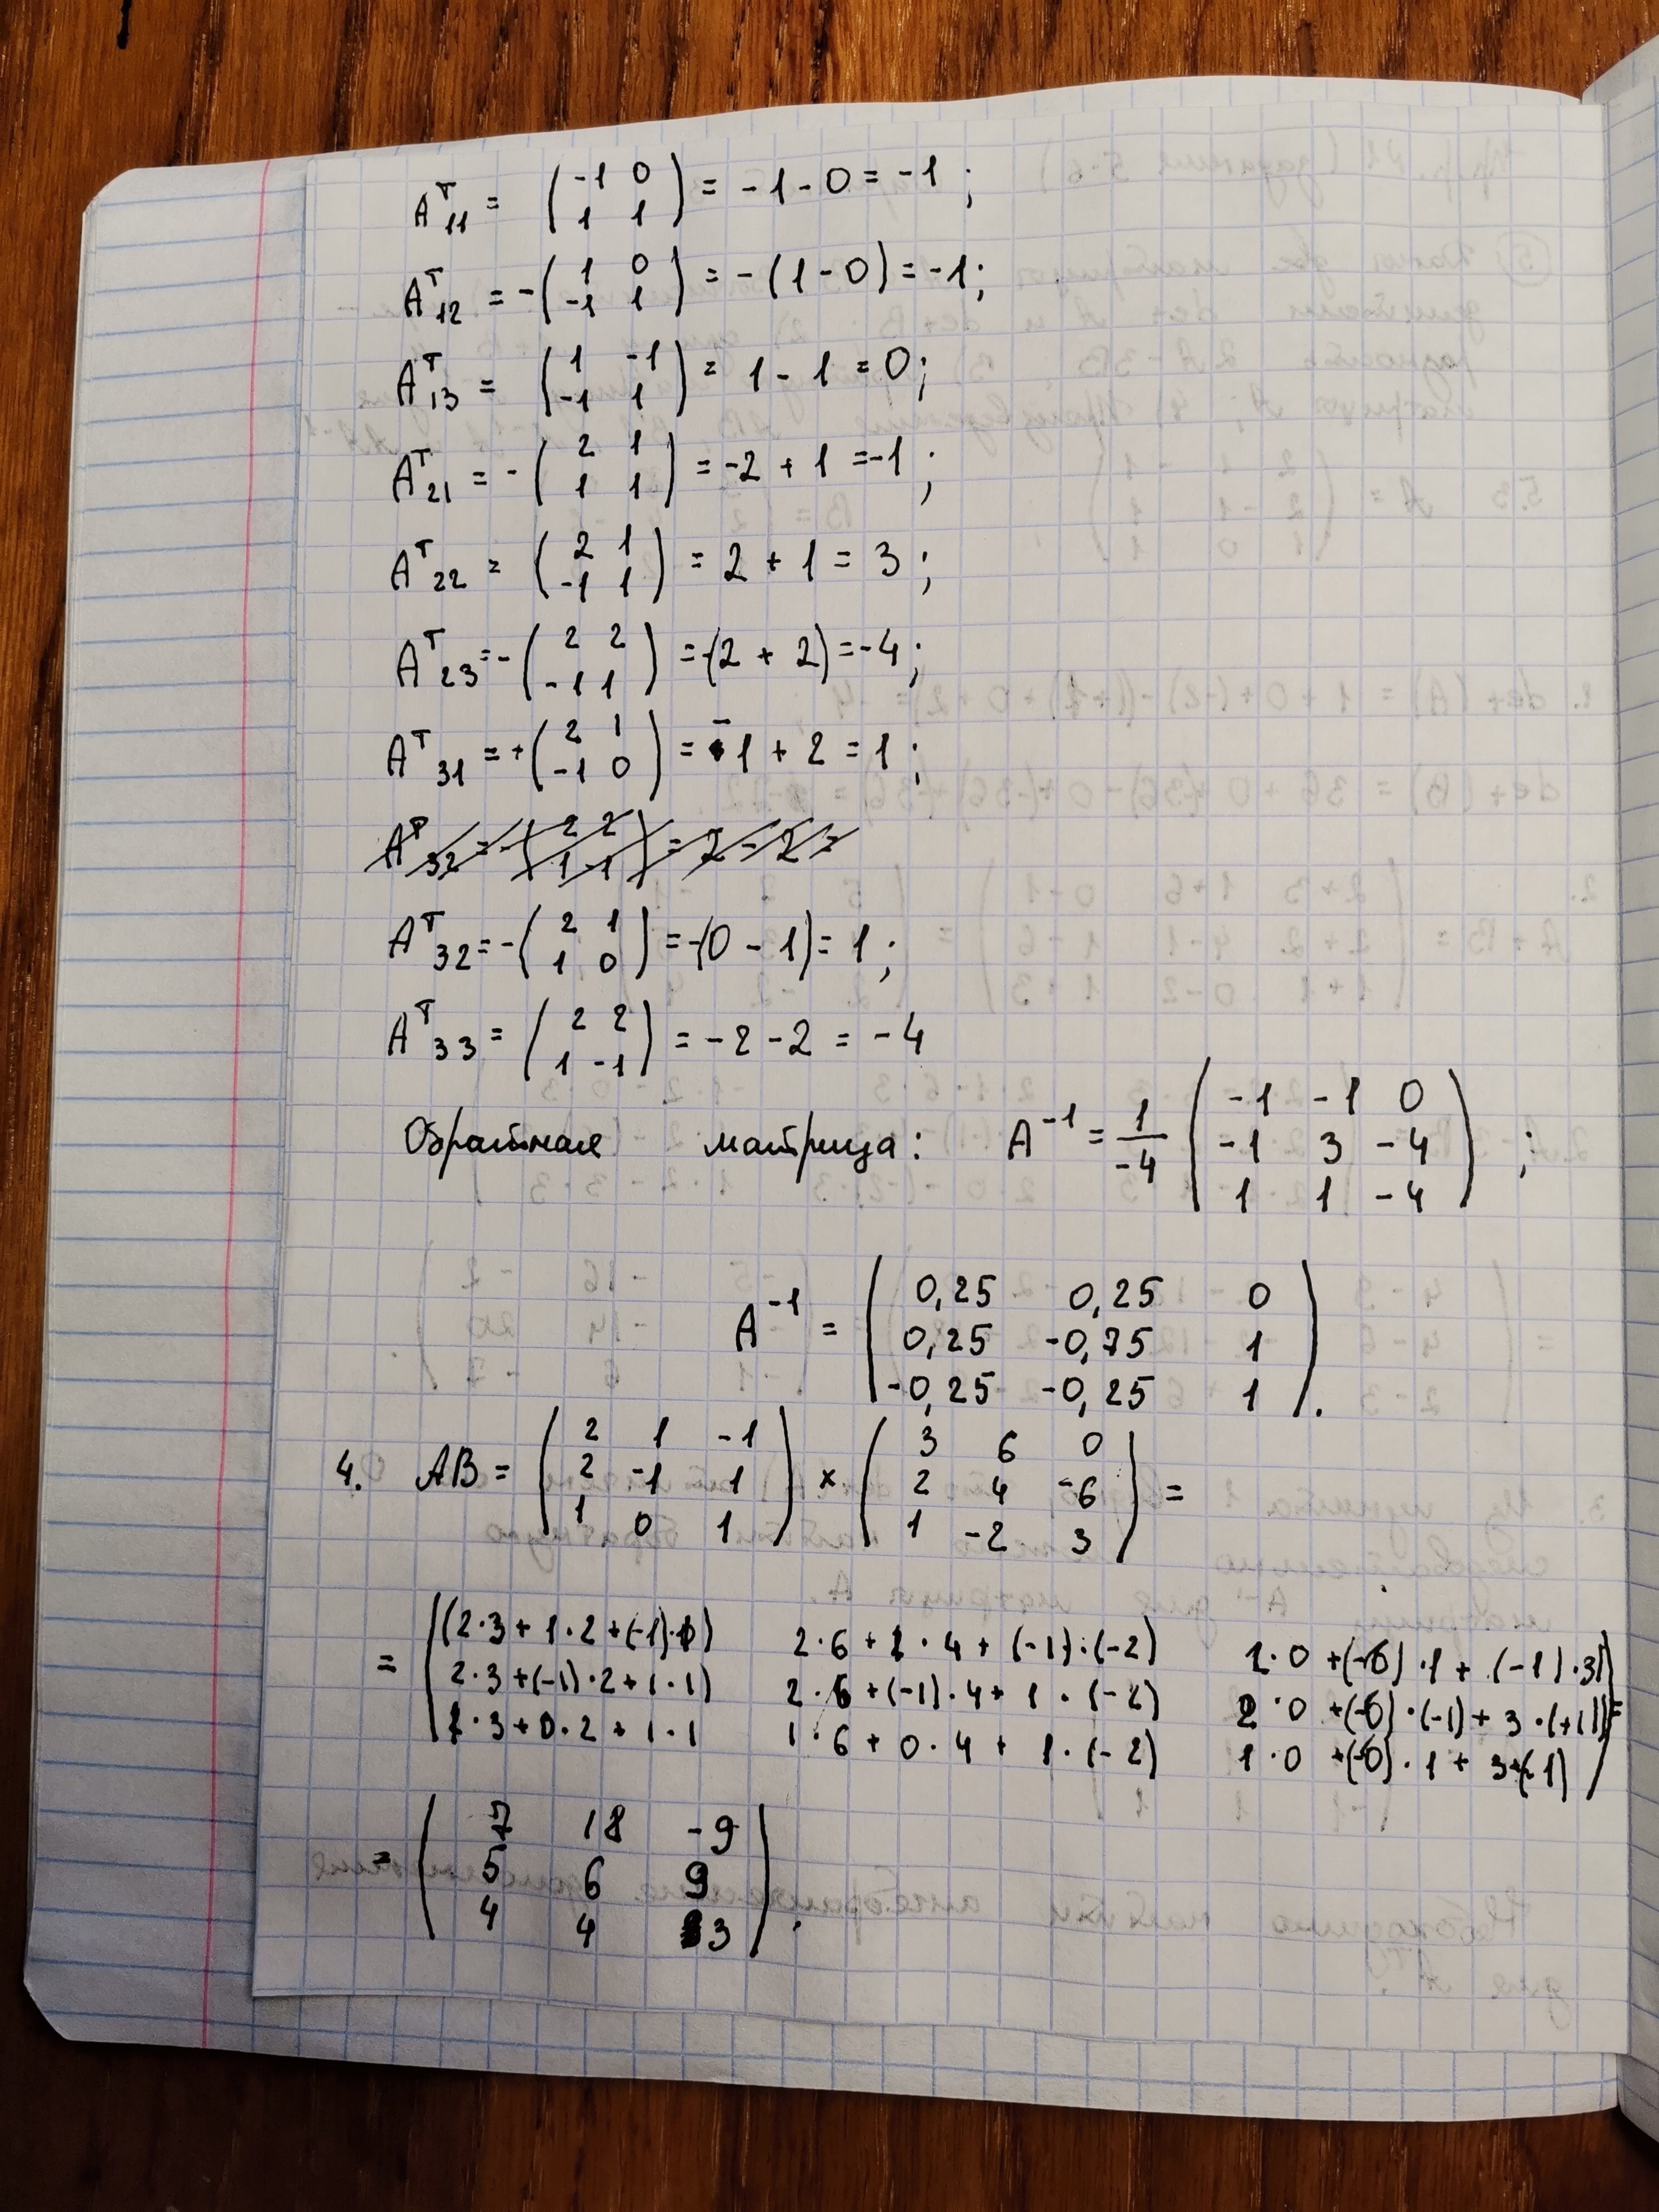 Aᵀ₁₁ = (-1 0; 1 1) = -1 - 0 = -1;
Aᵀ₁₂ = -(1 0; -1 1) = -(1 - 0) = -1;
Aᵀ₁₃ = (1 -1; -1 1) = 1 - 1 = 0;
Aᵀ₂₁ = -(2 1; 1 1) = -2 + 1 = -1;
Aᵀ₂₂ = (2 1; -1 1) = 2 + 1 = 3;
Aᵀ₂₃ = -(2 2; -1 1) = -(2 + 2) = -4;
Aᵀ₃₁ = +(2 1; -1 0) = -1 + 2 = 1;
Aᵀ₃₂ = -(2 1; 1 0) = -(0 - 1) = 1;
Aᵀ₃₃ = (2 2; 1 -1) = -2 - 2 = -4
Обратная матрица: A⁻¹ = 1/-4 (-1 -1 0; -1 3 -4; 1 1 -4);
A⁻¹ = (0,25 0,25 0; 0,25 -0,75 1; -0,25 -0,25 1).
4. AB = (2 1 -1; 2 -1 1; 1 0 1) × (3 6 0; 2 4 -6; 1 -2 3) =
= ((2·3 + 1·2 + (-1)·1) 2·6 + 1·4 + (-1)·(-2) 2·0 + (-6)·1 + (-1)·3)
2·3 + (-1)·2 + 1·1) 2·6 + (-1)·4 + 1·(-2) 2·0 + (-6)·(-1) + 3·(+1)
1·3 + 0·2 + 1·1 1·6 + 0·4 + 1·(-2) 1·0 + (-0)·1 + 3·1) =
= (7 18 -9; 5 6 9; 4 4 3).